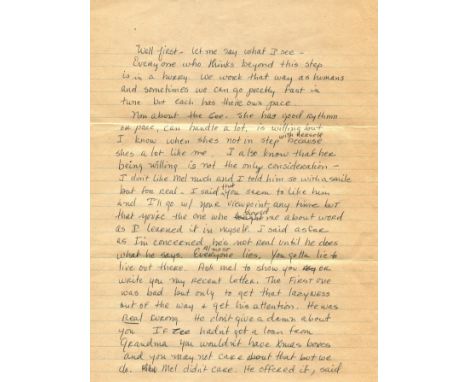 Well first - let me say what I see -
Everyone who thinks beyond this step
is in a hurry. We work that way as humans
and sometimes we can go pretty fast in
tune but each has there own pace.
Now about the Zee. She has good rythmn
or pace, can handle a lot, is willing but
I know when shes not in step with herself because
shes a lot like me. I also know that her
being willing is not the only consideration -
I don't like Mel much and I told him so with a smile
but too real. I said that you seem to like him
and I'll go w/ your viewpoint any time but
that you're the one who taught me about word
as I learned it in myself. I said as far
as I'm concerned he's not real until he does
what he says. Almost Everyone lies. You gotta lie to
live out there. Ask mel to show you or
write you my recent letter. The first one
was bad but only to get that lazyness
out of the way & get his attention. He was
Real wrong. He don't give a damn about
you. If Zee hadn't got a loan from
Grandma you wouldn't have
and you may not care about that but we
do. Mel didn't care. He offered it, said